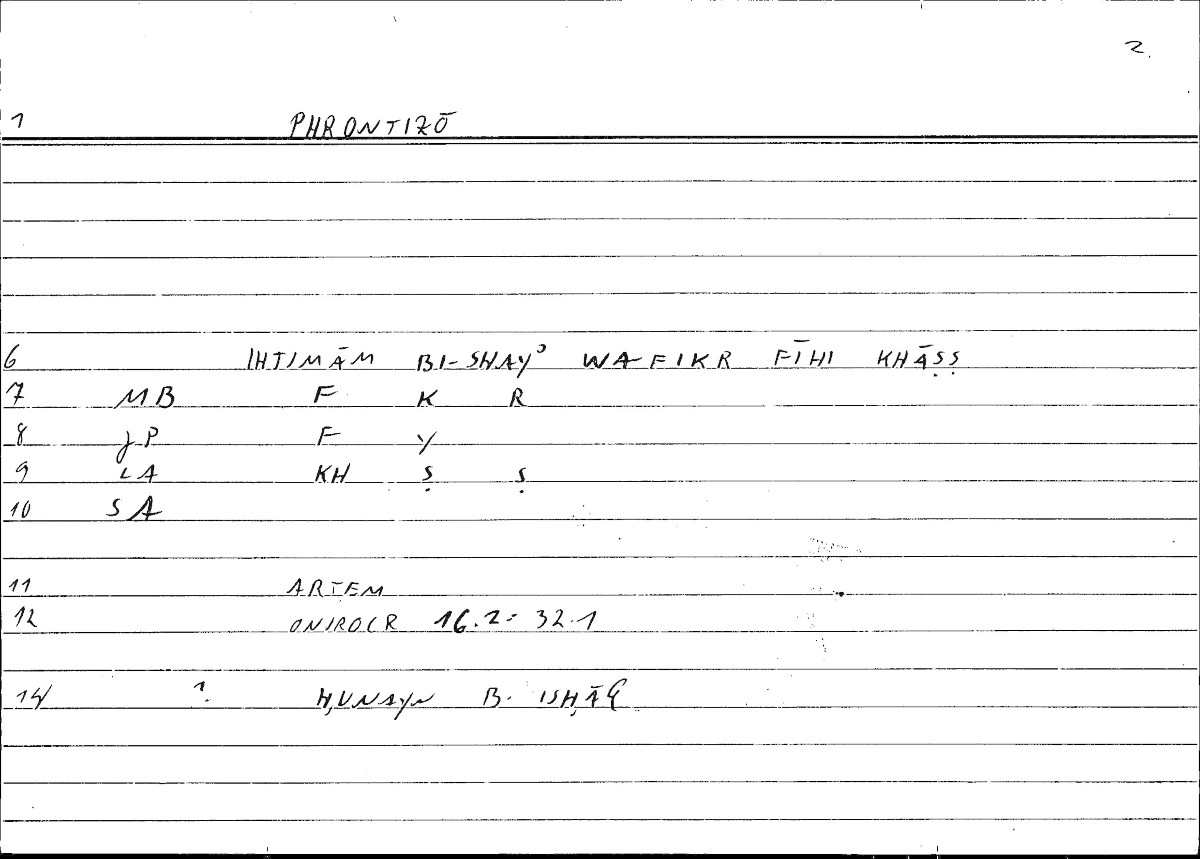 2.
1 PHRONTIZŌ
6 IHTIMĀM BI-SHAYʾ WA-FIKR FĪHI KHĀṢṢ
7 MB F K R
8 JP F Y
9 LA KH Ṣ Ṣ
10 SA
11 ARTEM
12 ONIROCR 16.2 = 32.1
14 1. ḤUNAYN B. ISḤĀQ